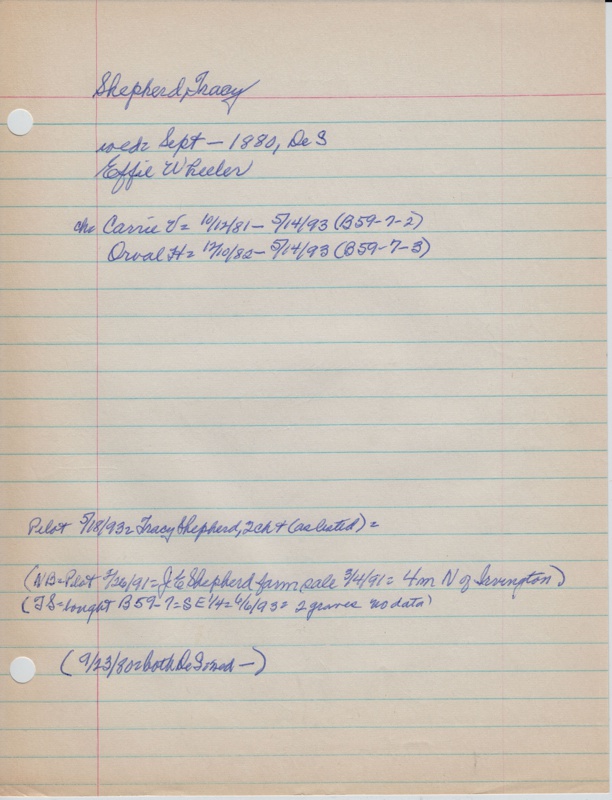 Shepherd, Tracy
wed= Sept — 1880, DeS
Effie Wheeler
ch= Carrie V= 10/12/81 – 5/14/93 (B59-7-2)
Orval H= 12/10/82 – 5/14/93 (B59-7-3)
Pilot 5/18/93= Tracy Shepherd, 2 ch + (as listed) =
(NB=Pilot 2/26/91= J E Shepherd farm sale 3/4/91= 4m N of Irvington)
(TS=bought B59-7=SE1/4=6/6/93= 2 graves no data)
(9/23/80= both DeS wed —)